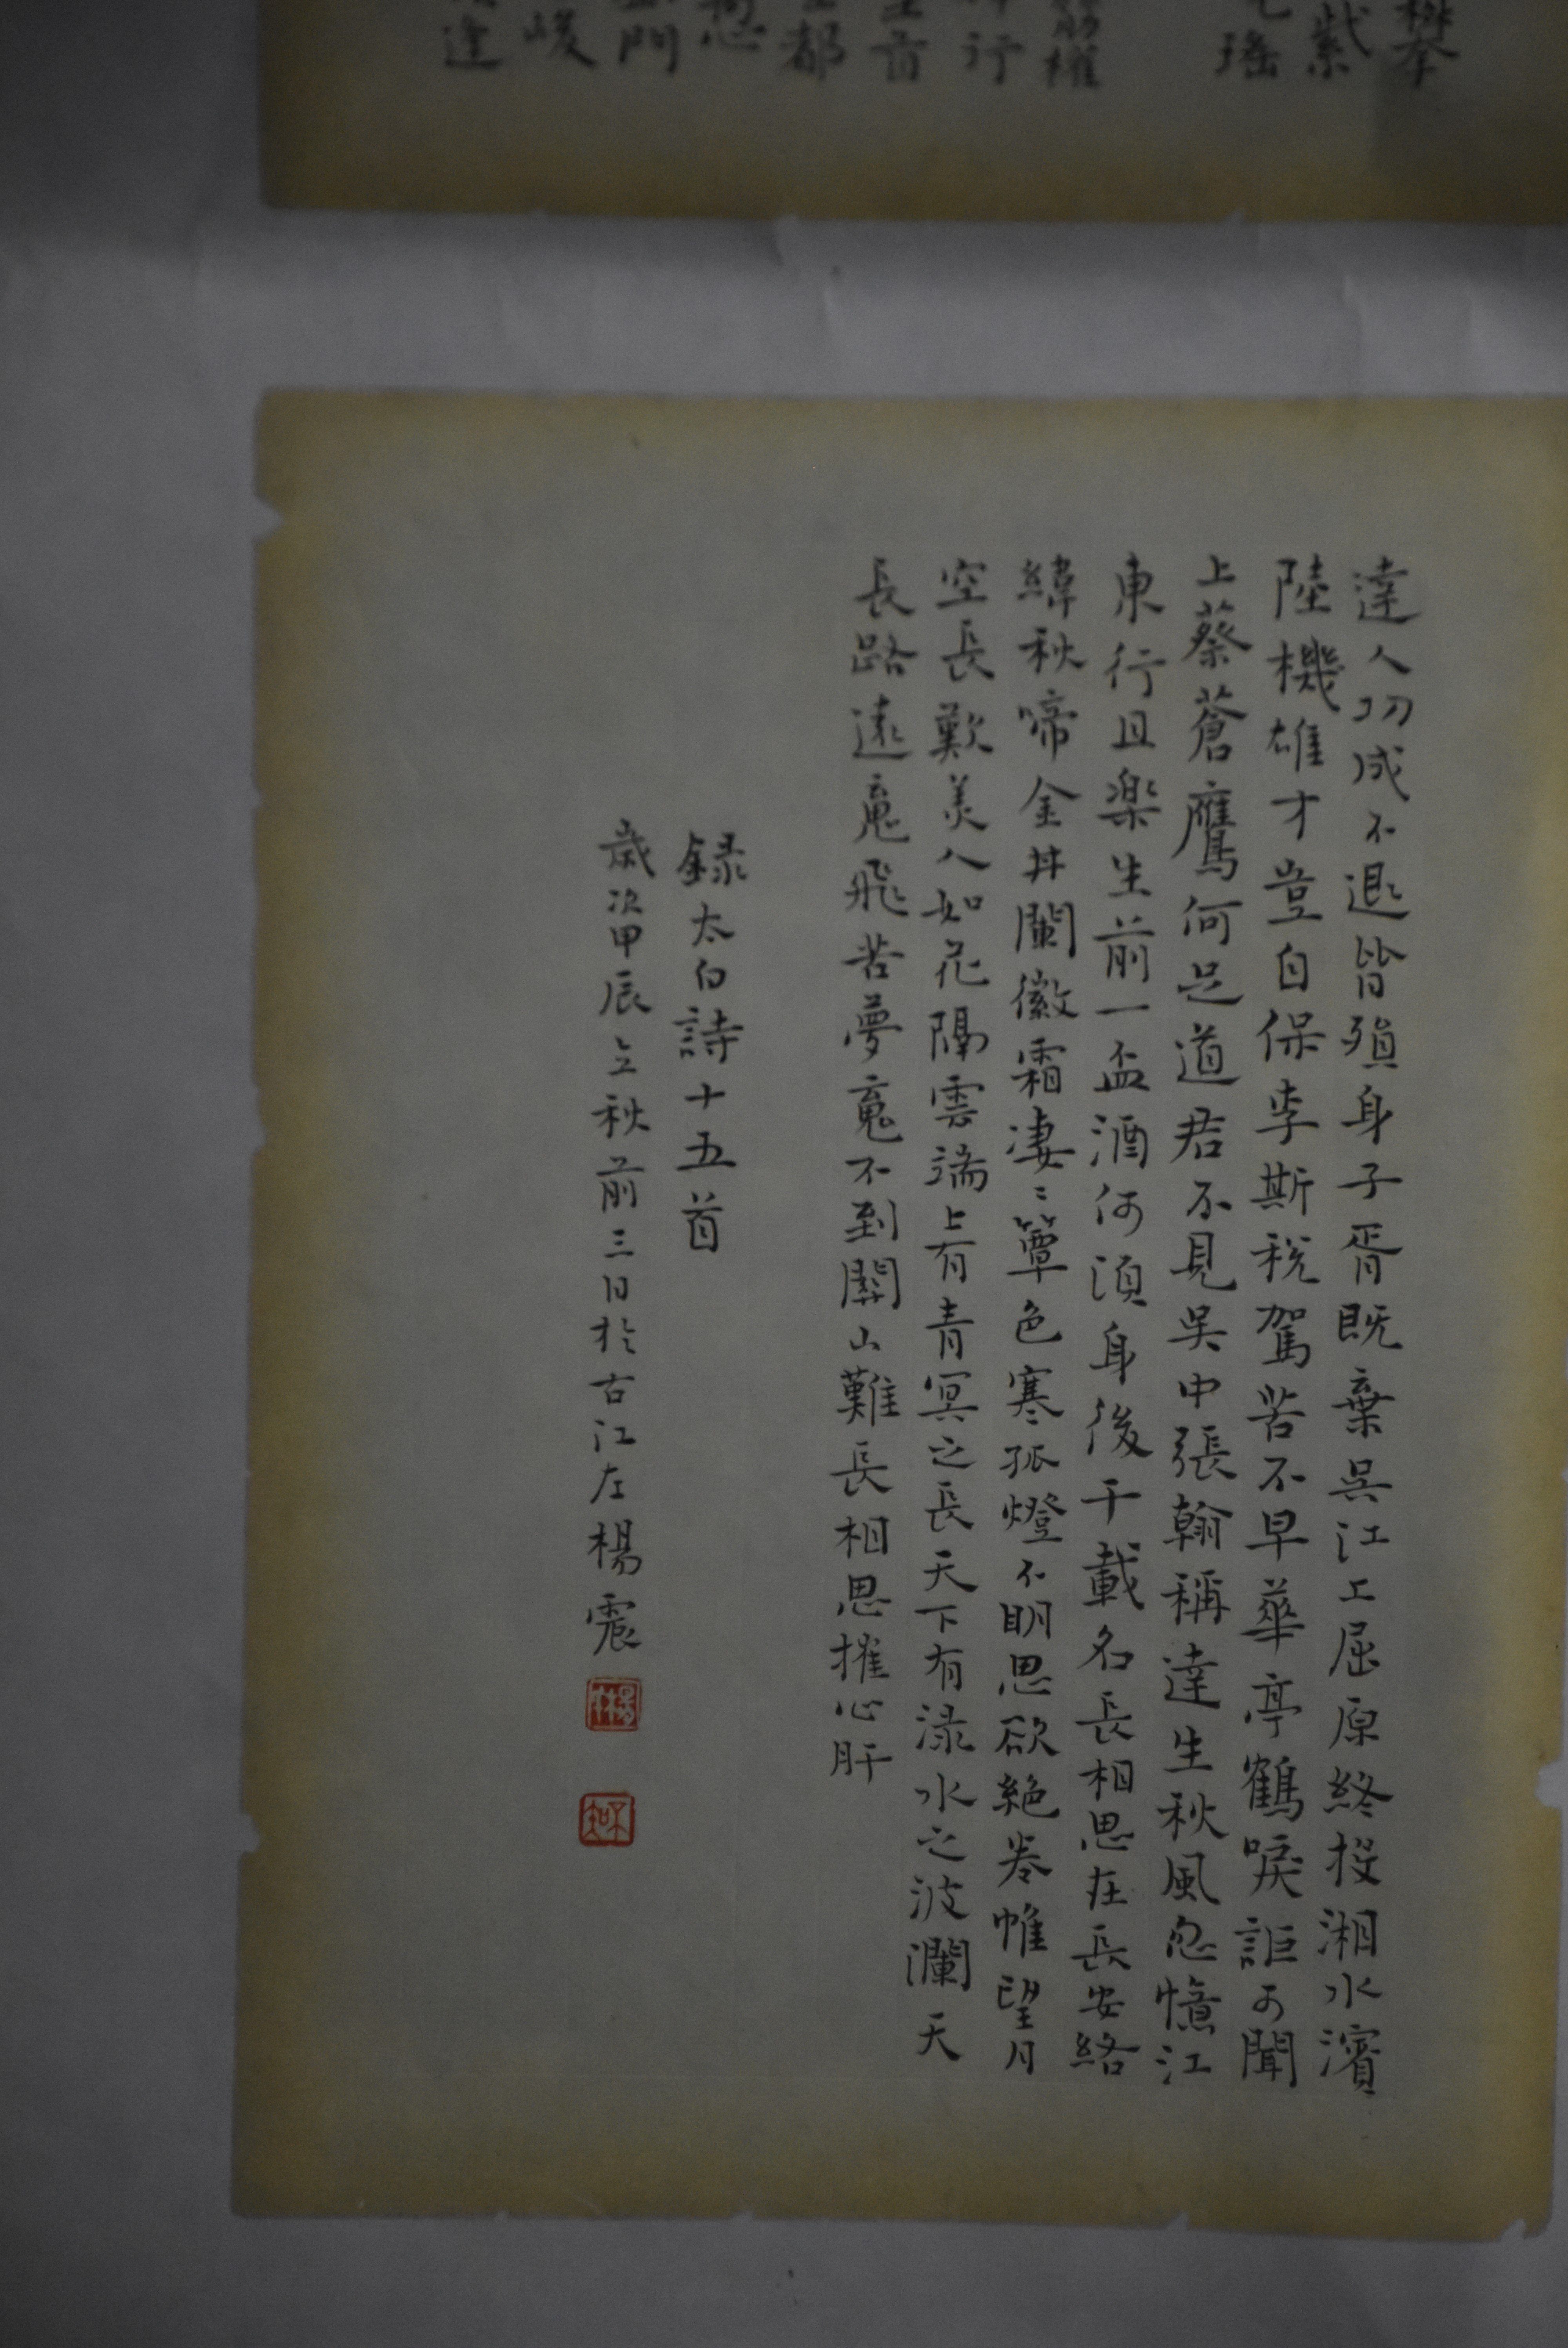 攀
紫
瑤
權
行
首
都
門
峻
達人功成不退皆殞身子胥既棄吳江上屈原終投湘水濱
陸機雄才豈自保李斯稅駕苦不早華亭鶴唳詎可聞
上蔡蒼鷹何足道君不見吳中張翰稱達生秋風忽憶江
東行且楽生前一盃酒何須身後千載名長相思在長安絡
緯秋啼金井闌徽霜凄〻簟色寒孤燈不明思欲絕卷帷望月
空長歎美人如花隔雲端上有青冥之長天下有淥水之波瀾天
長路遠魂飛苦夢魂不到關山難長相思摧心肝
録太白詩十五首
歲次甲辰立秋前三日於古江左楊震